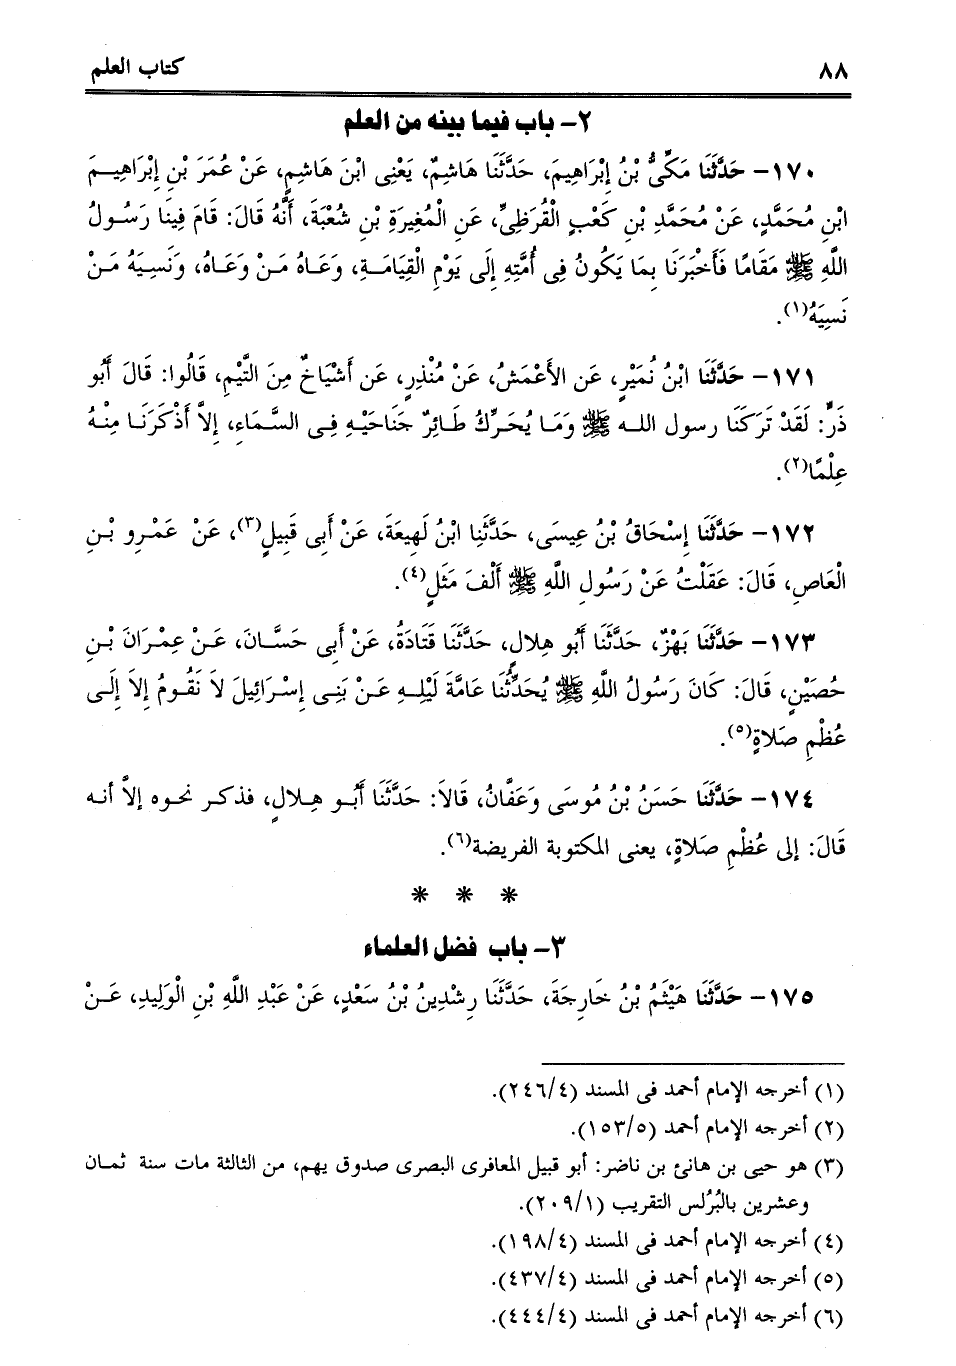 ٨٨ كتاب العلم
٢- باب فيما بينه من العلم
١٧٠- حَدَّثَنَا مَكِّىُّ بْنُ إِبْرَاهِيمَ، حَدَّثَنَا هَاشِمٌ، يَعْنِى ابْنَ هَاشِمٍ، عَنْ عُمَرَ بْنِ إِبْرَاهِيمَ
ابْنِ مُحَمَّدٍ، عَنْ مُحَمَّدِ بْنِ كَعْبٍ الْقُرَظِىِّ، عَنِ الْمُغِيرَةِ بْنِ شُعْبَةَ، أَنَّهُ قَالَ: قَامَ فِينَا رَسُولُ
اللَّهِ ﷺ مَقَامًا فَأَخْبَرَنَا بِمَا يَكُونُ فِى أُمَّتِهِ إِلَى يَوْمِ الْقِيَامَةِ، وَعَاهُ مَنْ وَعَاهُ، وَنَسِيَهُ مَنْ
نَسِيَهُ(١).
١٧١- حَدَّثَنَا ابْنُ نُمَيْرٍ، عَنِ الأَعْمَشُ، عَنْ مُنْذِرٍ، عَن أَشْيَاخٌ مِنَ التَّيْمِ، قَالُوا: قَالَ أَبُو
ذَرٍّ: لَقَدْ تَرَكَنَا رسول الله ﷺ وَمَا يُحَرِّكُ طَائِرٌ جَنَاحَيْهِ فِى السَّمَاءِ، إِلاَّ أَذْكَرَنَا مِنْهُ
عِلْمًا(٢).
١٧٢- حَدَّثَنَا إِسْحَاقُ بْنُ عِيسَى، حَدَّثَنِا ابْنُ لَهِيعَةَ، عَنْ أَبِى قَبِيلٍ(٣)، عَنْ عَمْرِو بْنِ
الْعَاصِ، قَالَ: عَقَلْتُ عَنْ رَسُولِ اللَّهِ ﷺ أَلْفَ مَثَلٍ(٤).
١٧٣- حَدَّثَنَا بَهْزٌ، حَدَّثَنَا أَبُو هِلالٍ، حَدَّثَنَا قَتَادَةُ، عَنْ أَبِى حَسَّانَ، عَنْ عِمْرَانَ بْنِ
حُصَيْنٍ، قَالَ: كَانَ رَسُولُ اللَّهِ ﷺ يُحَدِّثُنَا عَامَّةَ لَيْلِهِ عَنْ بَنِى إِسْرَائِيلَ لاَ نَقُومُ إِلاَ إِلَى
عُظْمِ صَلاةٍ(٥).
١٧٤- حَدَّثَنَا حَسَنُ بْنُ مُوسَى وَعَفَّانُ، قَالاَ: حَدَّثَنَا أَبُو هِلالٍ، فذكر نحوه إلاَّ أنه
قَالَ: إلى عُظْمِ صَلاةٍ، يعنى المكتوبة الفريضة(٦).
* * *
٣- باب فضل العلماء
١٧٥- حَدَّثَنَا هَيْثَمُ بْنُ خَارِجَةَ، حَدَّثَنَا رِشْدِينُ بْنُ سَعْدٍ، عَنْ عَبْدِ اللَّهِ بْنِ الْوَلِيدِ، عَنْ
(١) أخرجه الإمام أحمد فى المسند (٢٤٦/٤).
(٢) أخرجه الإمام أحمد (١٥٣/٥).
(٣) هو حيى بن هانئ بن ناضر: أبو قبيل المعافرى البصرى صدوق يهم، من الثالثة مات سنة ثمان
وعشرين بالبُرُلس التقريب (٢٠٩/١).
(٤) أخرجه الإمام أحمد فى المسند (١٩٨/٤).
(٥) أخرجه الإمام أحمد فى المسند (٤٣٧/٤).
(٦) أخرجه الإمام أحمد فى المسند (٤٤٤/٤).